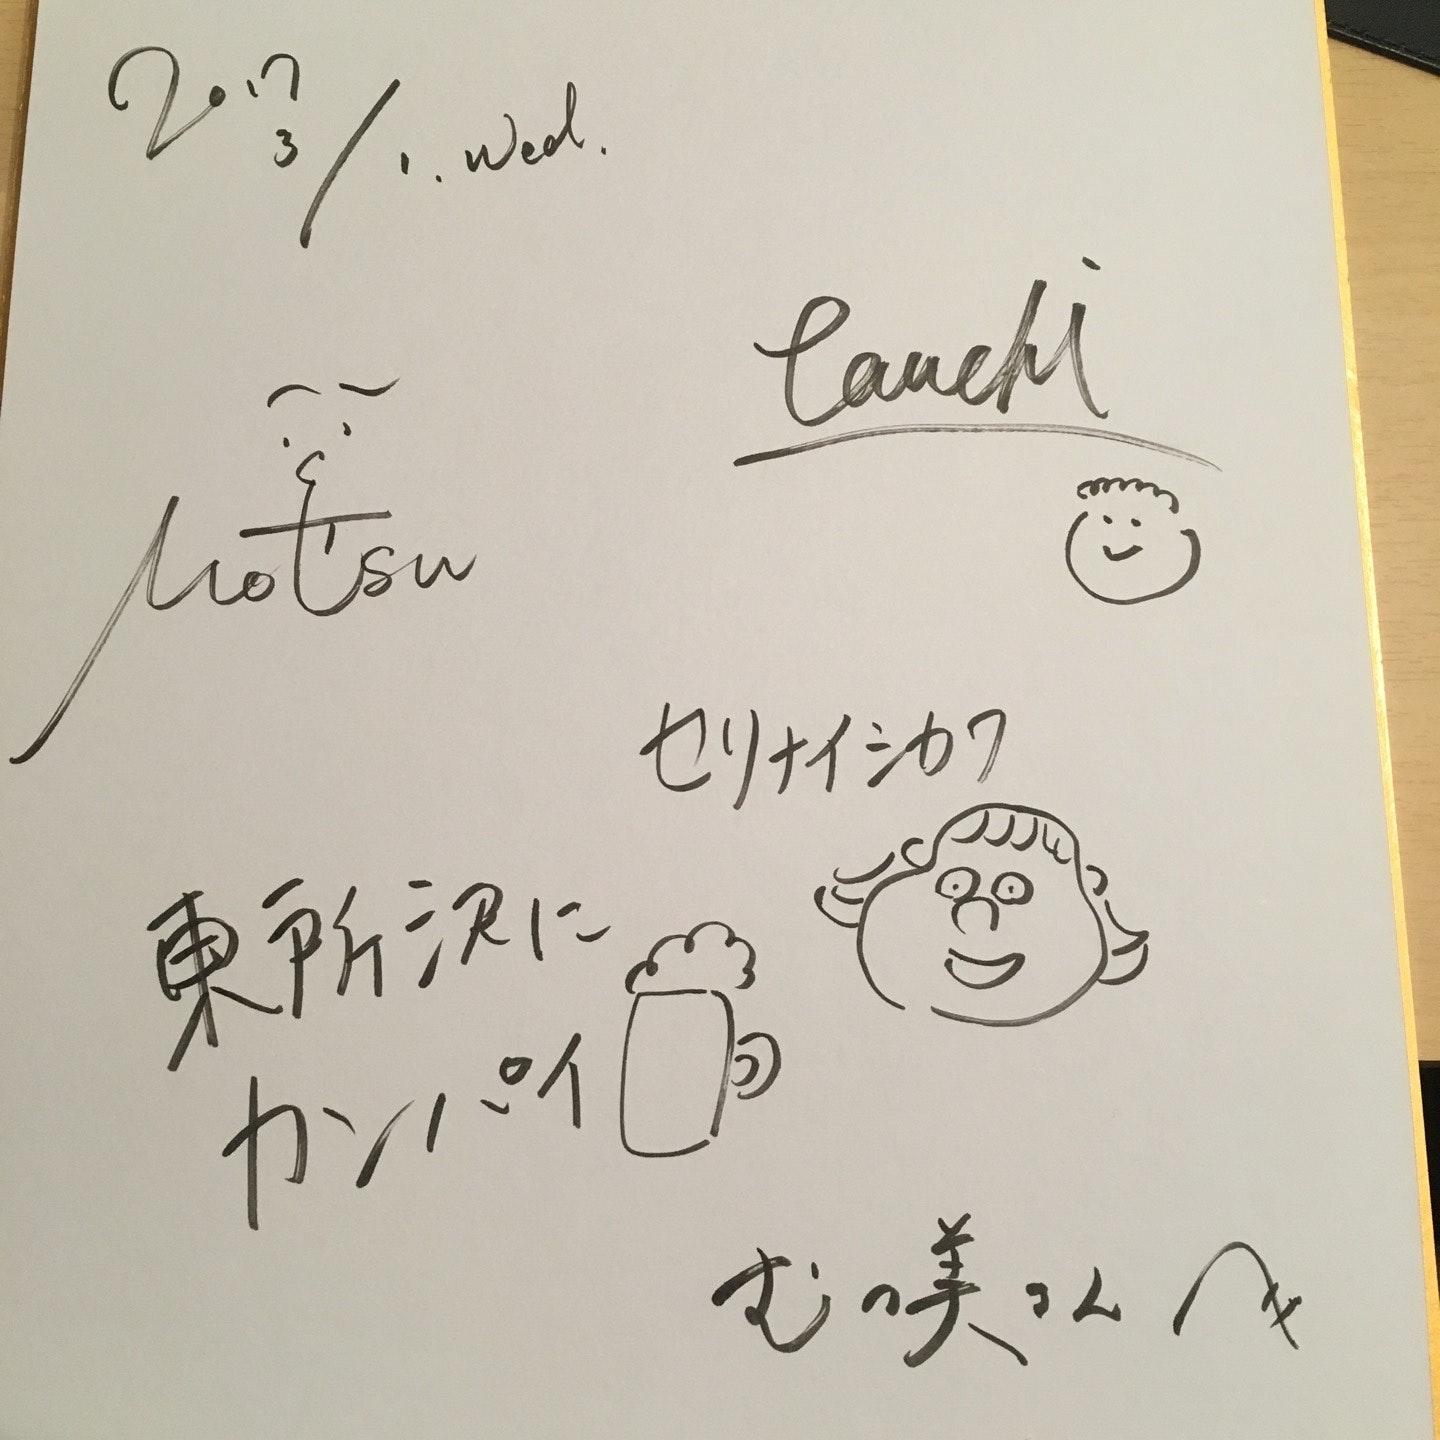 2017
3/1. Wed.
Tauchi
Motsu
セリナイシカワ
東所沢に
カンパイ
むつ美さんへ